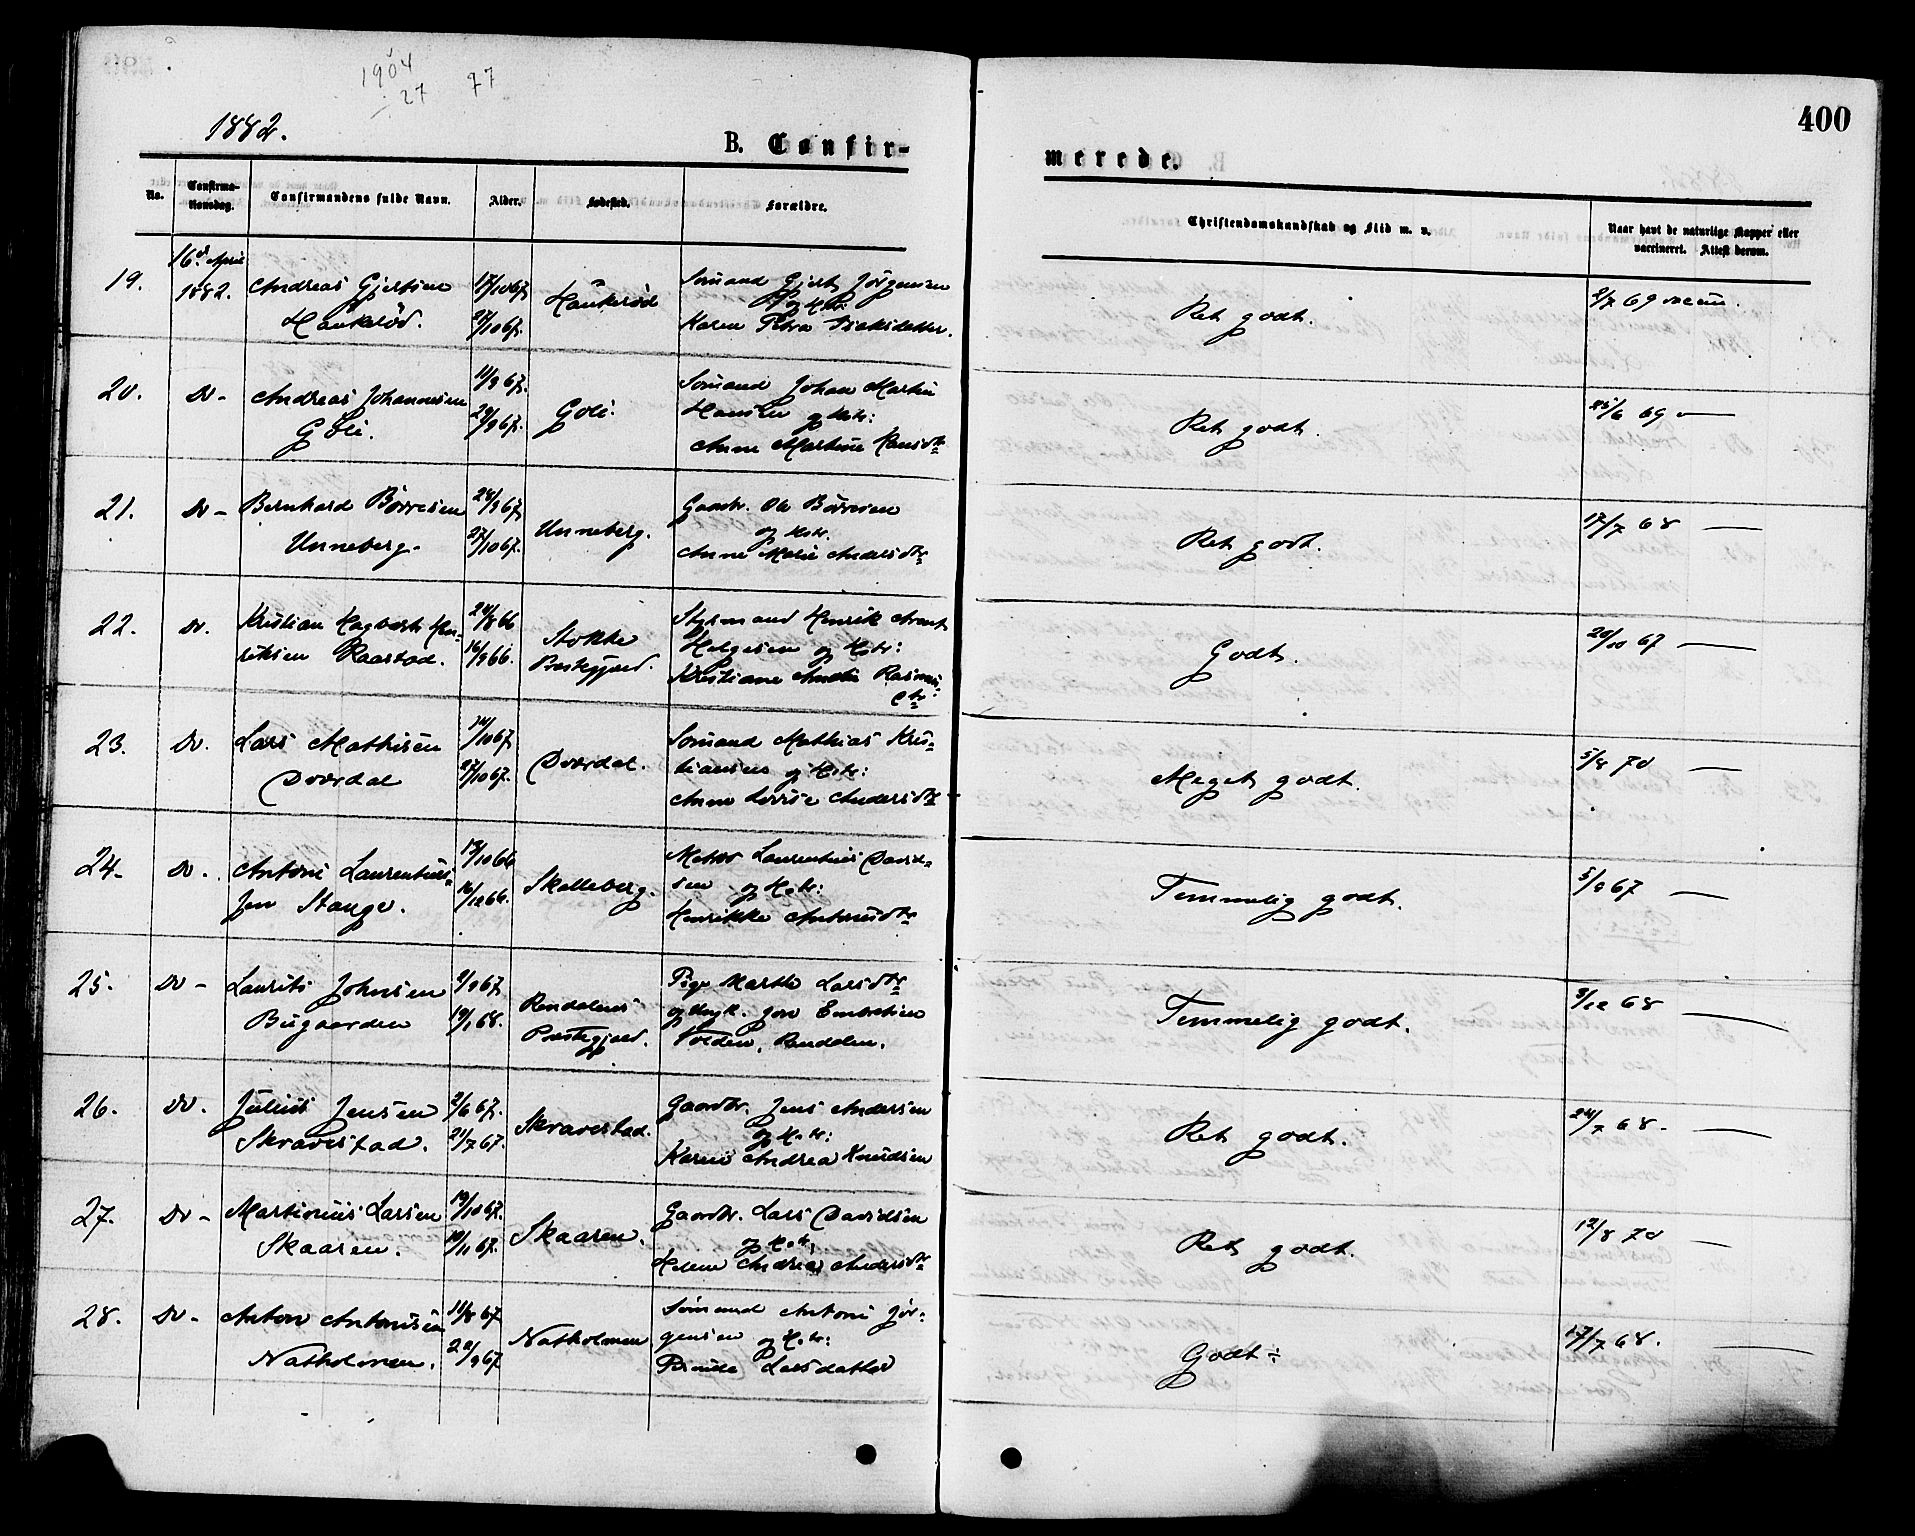 1904
27 77
1882.
B. Confir-
merede.
400
No.
Confirma-
tionsdag.
Confirmandens fulde Navn.
Alder.
Fødested.
Forældre.
Christendomskundskab og Flid m. v.
Naar havt de naturlige Kopper eller
vaccineret. Attest derom.
19.
16de April
1882.
Andreas Gjertsen
Haukerød.
17/10 67.
27/10 67.
Haukerød
Sømand Gjert Jørgensen
og Hstr:
Karen Petra Isaksdatter.
Ret godt.
2/7 69 vaccin.
20.
Do -
Andreas Johannesen
Goli.
11/9 67.
29/9 67.
Goli.
Sømand Johan Martin
Hansen og Hstr:
Anne Martine Hansdtr
Ret godt.
25/6 69 —
21.
Do -
Bernhard Börresen
Unneberg.
28/9 67
27/10 67.
Unneberg.
Gaardbr. Ole Börresen
og Hstr.
Anne Marie Andersdtr
Ret godt.
17/7 68 —
22.
Do.
Kristian Hagbarth Hen-
riksen Raastad.
24/8 66
16/9 66.
Stokke
Præstegjæld.
Styrmand Henrik Arent
Helgesen og Hstr:
Kristiane Amalie Rasmus-
dtr
Godt.
20/10 67 —
23.
Do.
Lars Mathisen
Dværdal
14/10 67
27/10 67.
Dværdal.
Sømand Mathias Kris-
tiansen og Hstr:
Anne Lovise Andersdtr
Meget godt.
5/8 70 —
24.
Do.
Antoni Laurentius-
sen Stange.
13/10 66
16/12 66.
Skelleberg.
Matros Laurentius David-
sen og Hstr:
Henrikke Antonisdtr
Temmelig godt.
5/9 67 —
25.
Do -
Laurits Johnsen
Bugaarden
9/9 67
19/1 68.
Rendalens
Præstegjæld.
Pige Marthe Larsdtr
og Ungk. Jon Embretsen
Volden, Rendalen.
Temmelig godt.
3/12 68 —
26.
Do.
Julius Jensen
Skravestad.
2/6 67.
21/7 67.
Skravestad.
Gaardbr. Jens Andersen
og Hstr:
Karen Andrea Knudsen
Ret godt.
24/7 68. —
27.
Do -
Martinius Larsen
Skaaren.
19/10 67.
10/11 67.
Skaaren.
Gaardbr. Lars Davidsen
og Hstr.
Helene Andrea Andersdtr
Ret godt.
12/8 70 —
28.
Do -
Anton Antonisen
Natholmen.
11/8 67
22/9 67
Natholmen
Sømand Antoni Jør-
gensen og Hstr:
Larsdatter
Godt ÷
17/7 68. —